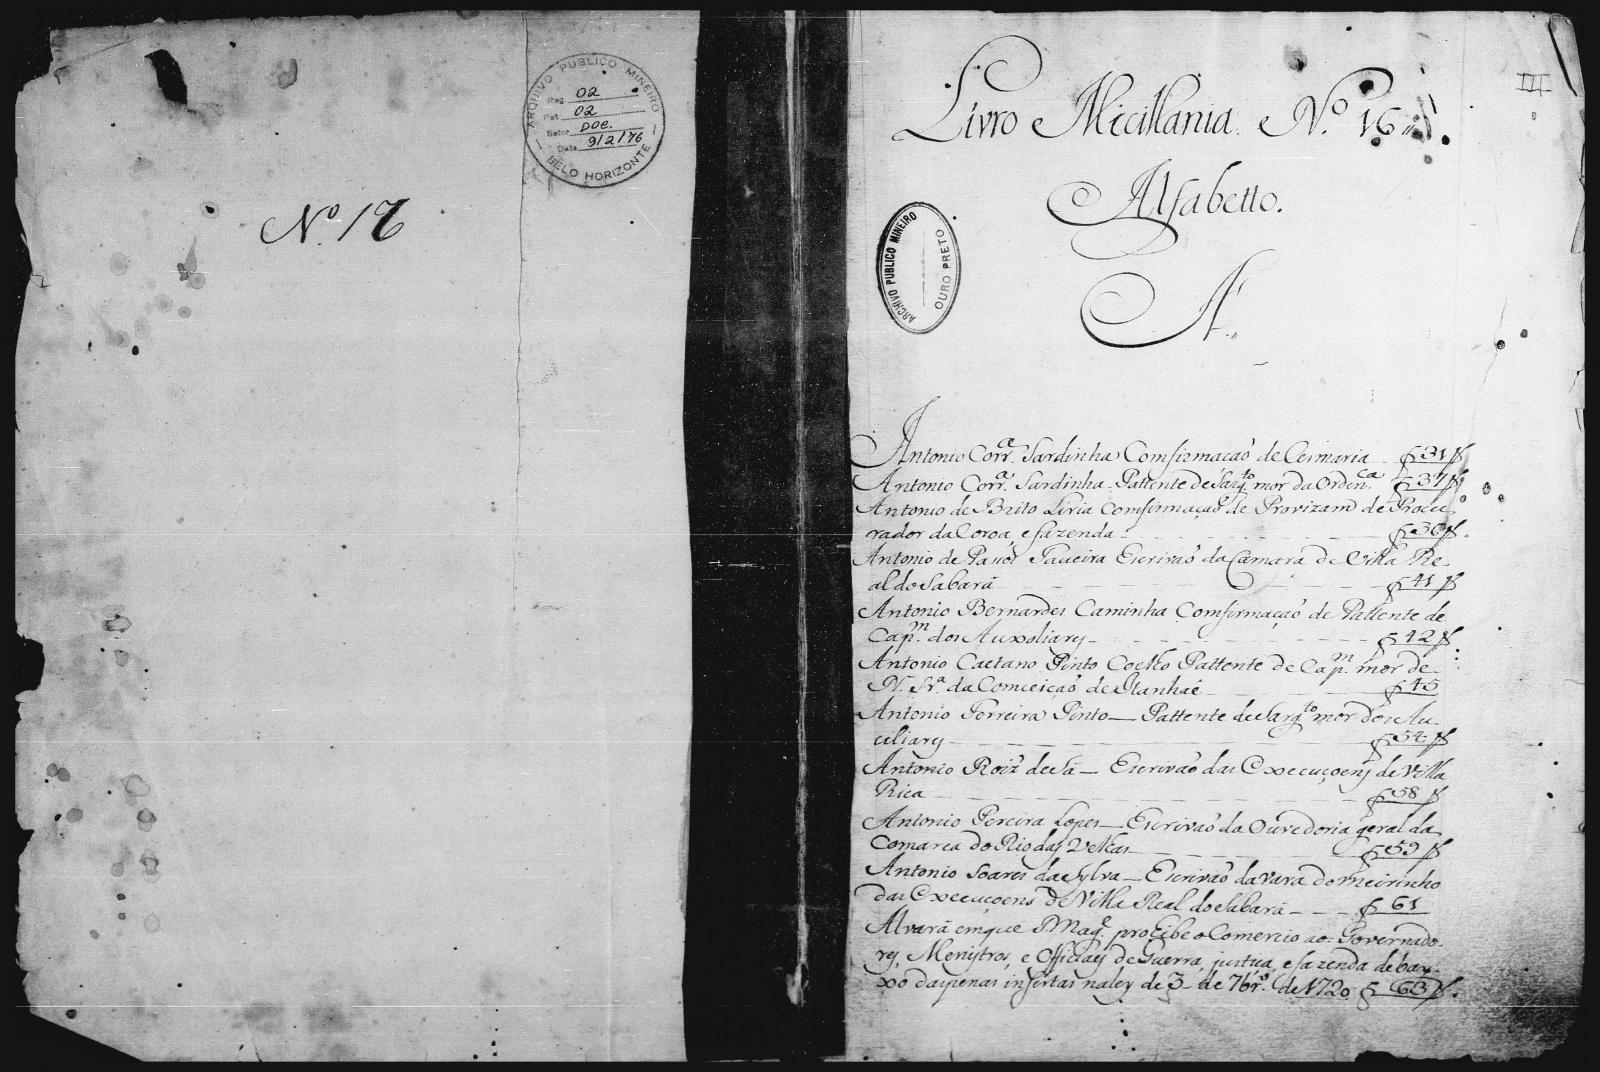 ARQUIVO PUBLICO MINEIRO
Reg 02
Pat 02
Setor DOC.
Data 9/2/76
BELO HORIZONTE
Nº. 17
III
Livro Micillania. Nº. 16
Alfabetto.
ARCHIVO PUBLICO MINEIRO
OURO PRETO
A
Antonio Corr.ª Sardinha Comfirmação de Cesmaria f 31
Antonio Corr.ª Sardinha Pattente de Sarg.to mor da Orden.ca f 37
Antonio de Brito Liria Comfirmação de Provizam de Procu-
rador da Coroa, e fazenda f 36
Antonio de Passos Taveira Escrivaõ da Camara de Villa Re-
al do Sabarâ f 41
Antonio Bernardes Caminha Comfirmaçaõ de Pattente de
Cap.m dos Auxoliares f 42
Antonio Caetano Pinto Coelho Pattente de Cap.m mor de
N. Sr.ª da Comceiçaõ de Itanhâe f 45
Antonio Ferreira Pinto — Pattente de Sarg.to mor dos Au-
ciliares f 54
Antonio Roiz de Sâ — Escrivaõ das Execuçoens de Villa
Rica f 58
Antonio Pereira Lopes — Escrivaõ da Ouvedoria geral da
Comarca do Rio das Velhas f 59
Antonio Soares da Sylva — Escrivaõ da Vara do Meirinho
das Execuçoens de Villa Real do Sabarâ f 61
Alvarâ em que S Mag.e proHibe o Comercio aos Governado-
res, Menistros, e Officiaes de Guerra, justiça, e fazenda debay-
xo das penas insertas na ley de 3 de 7br.º de 1720 f 63